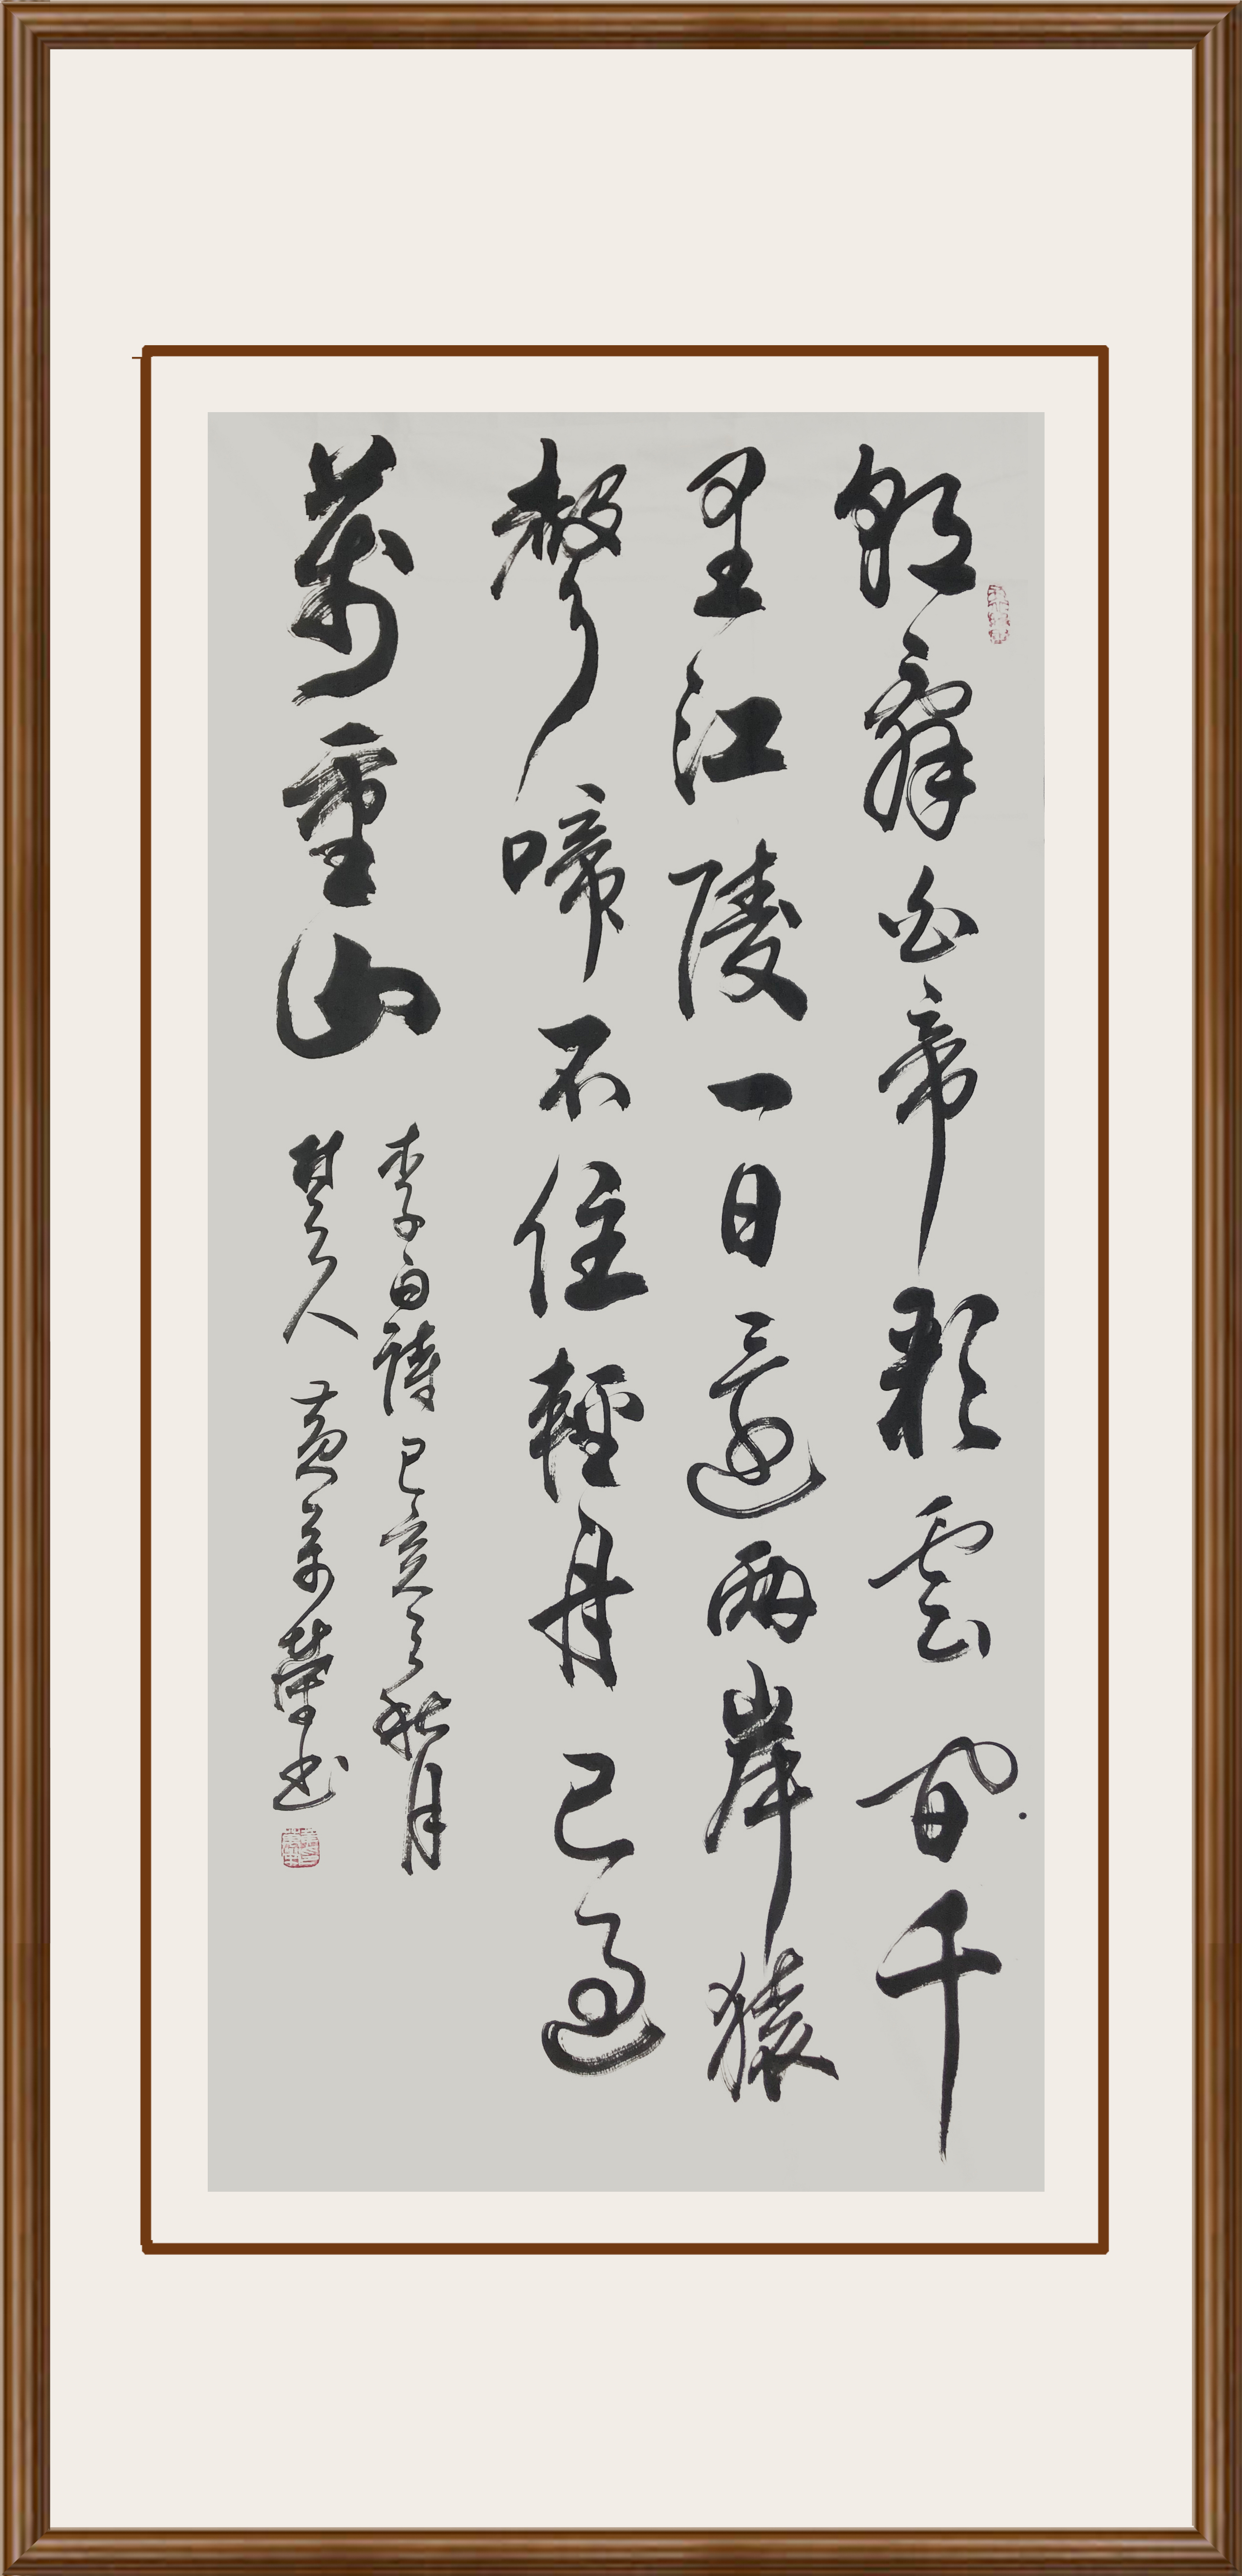 朝辭白帝彩雲間千
里江陵一日還兩岸猿
聲啼不住輕舟已過
萬重山
李白詩己亥之秋月
楚人黃萬榮书